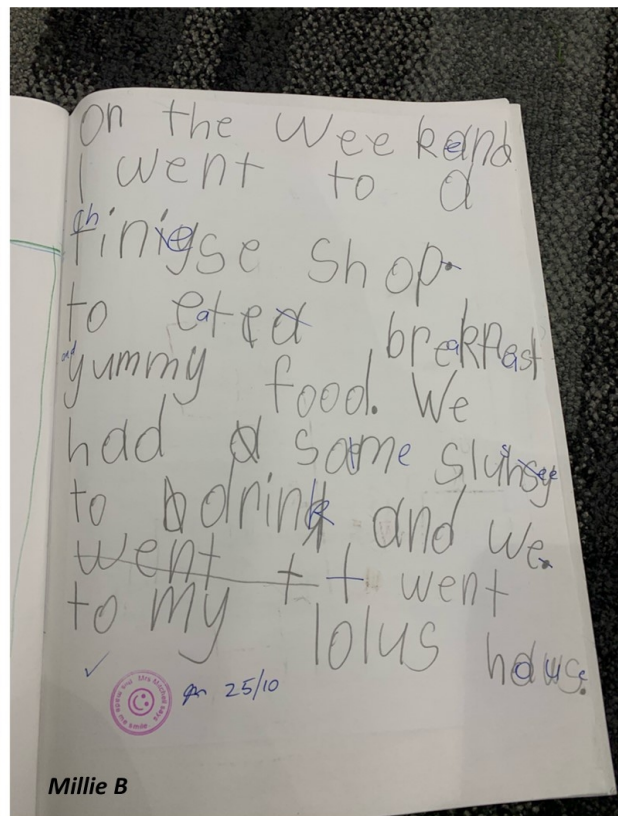 On the Weekend
I went to a
finise shop
to eat breakfast
yummy food. We
had some slushy
to drink and we
went t t went
to my lolus house.
25/10
Millie B